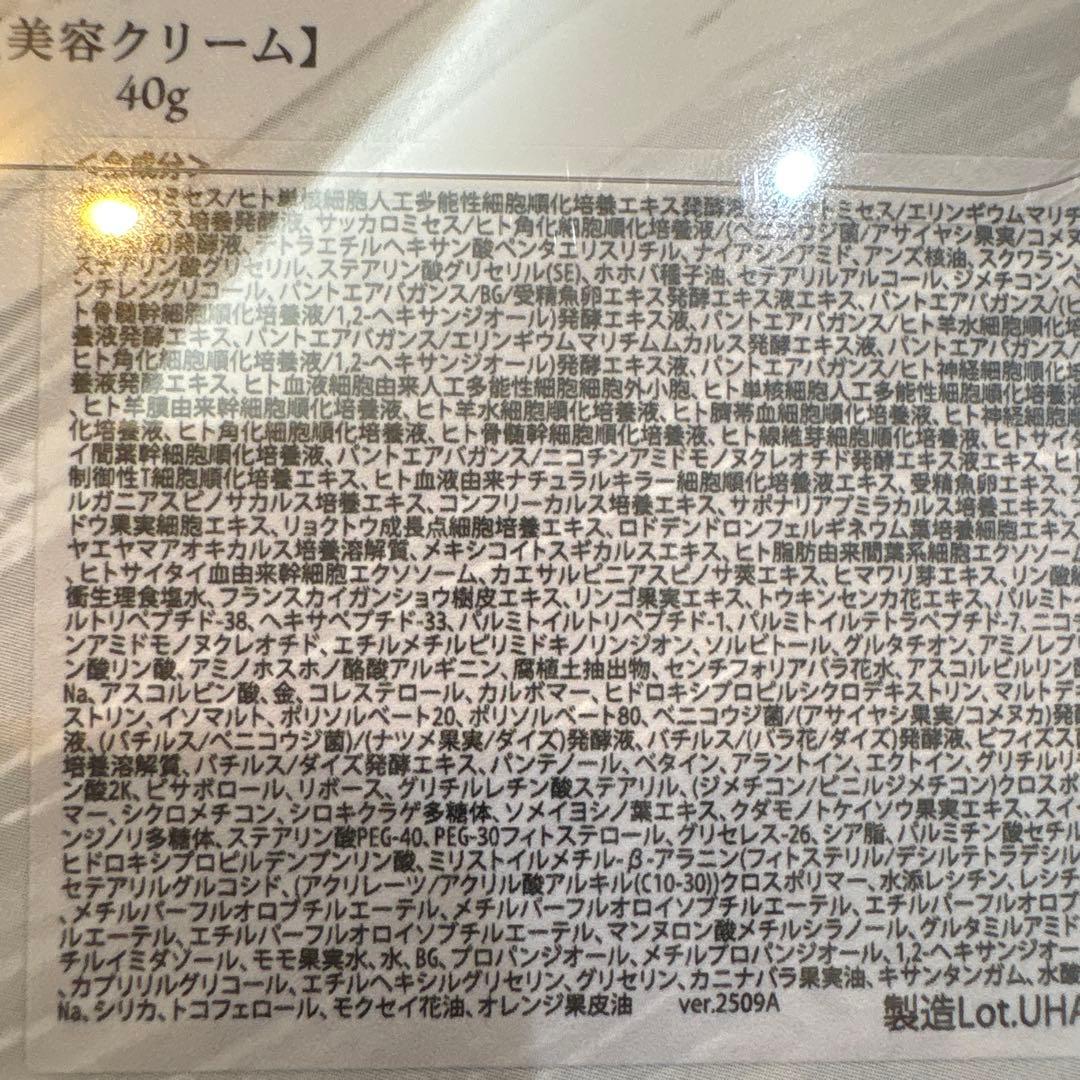 【美容クリーム】
40g
<全成分>
ロミセス/ヒト単核細胞人工多能性細胞順化培養エキス発酵液 ミセス/エリンギウムマリチ
ス培養発酵液、サッカロミセス/ヒト角化細胞順化培養液/(ベニコウジ菌/アサイヤシ果実/コメヌ
発酵液、テトラエチルヘキサン酸ペンタエリスリチル、ナイアシンアミド、アンズ核油、スクワラン、
ステアリン酸グリセリル、ステアリン酸グリセリル(SE)、ホホバ種子油、セテアリルアルコール、ジメチコン、ペ
ンチレングリコール、パントエアバガンス/BG/受精魚卵エキス発酵エキス液エキス、パントエアバガンス/(ヒ
ト骨髄幹細胞順化培養液/1,2-ヘキサンジオール)発酵エキス液、パントエアバガンス/ヒト羊水細胞順化
養液発酵エキス、パントエアバガンス/エリンギウムマリチムムカルス発酵エキス液、パントエアバガンス/
ヒト角化細胞順化培養液/1,2-ヘキサンジオール)発酵エキス液、パントエアバガンス/ヒト神経細胞順化培
養液発酵エキス、ヒト血液細胞由来人工多能性細胞細胞外小胞、ヒト単核細胞人工多能性細胞順化培養液
、ヒト羊膜由来幹細胞順化培養液、ヒト羊水細胞順化培養液、ヒト臍帯血細胞順化培養液、ヒト神経細胞順
化培養液、ヒト角化細胞順化培養液、ヒト骨髄幹細胞順化培養液、ヒト線維芽細胞順化培養液、ヒトサイタ
イ間葉幹細胞順化培養液、パントエアバガンス/ニコチンアミドモノヌクレオチド発酵エキス液エキス、ヒト
制御性T細胞順化培養エキス、ヒト血液由来ナチュラルキラー細胞順化培養液エキス、受精魚卵エキス、ア
ルガニアスピノサカルス培養エキス、コンフリーカルス培養エキス、サポナリアプミラカルス培養エキス、
ドウ果実細胞エキス、リョクトウ成長点細胞培養エキス、ロドデンドロンフェルギネウム葉培養細胞エキス、
ヤエヤマアオキカルス培養溶解質、メキシコイトスギカルスエキス、ヒト脂肪由来間葉系細胞エクソソーム
、ヒトサイタイ血由来幹細胞エクソソーム、カエサルピニアスピノサ莢エキス、ヒマワリ芽エキス、リン酸緩
衝生理食塩水、フランスカイガンショウ樹皮エキス、リンゴ果実エキス、トウキンセンカ花エキス、パルミトイ
ルトリペプチド-38、ヘキサペプチド-33、パルミトイルトリペプチド-1、パルミトイルテトラペプチド-7、ニコチ
ンアミドモノヌクレオチド、エチルメチルピリミドキノリンジオン、ソルビトール、グルタチオン、アミノレブリ
ン酸リン酸、アミノホスホノ酪酸アルギニン、腐植土抽出物、センチフォリアバラ花水、アスコルビルリン酸
Na、アスコルビン酸、金、コレステロール、カルボマー、ヒドロキシプロピルシクロデキストリン、マルトデキ
ストリン、イソマルト、ポリソルベート20、ポリソルベート80、ベニコウジ菌/(アサイヤシ果実/コメヌカ)発酵
液、(バチルス/ベニコウジ菌)/(ナツメ果実/ダイズ)発酵液、バチルス/(バラ花/ダイズ)発酵液、ビフィズス
培養溶解質、バチルス/ダイズ発酵エキス、パンテノール、ベタイン、アラントイン、エクトイン、グリチルリ
ン酸2K、ビサボロール、リボース、グリチルレチン酸ステアリル、(ジメチコン/ビニルジメチコン)クロスポ
マー、シクロメチコン、シロキクラゲ多糖体、ソメイヨシノ葉エキス、クダモノトケイソウ果実エキス、スイ
ンジノリ多糖体、ステアリン酸PEG-40、PEG-30フィトステロール、グリセレス-26、シア脂、パルミチン酸セチル
ヒドロキシプロピルデンプンリン酸、ミリストイルメチル-β-アラニン(フィトステリル/デシルテトラデシル
セテアリルグルコシド、(アクリレーツ/アクリル酸アルキル(C10-30))クロスポリマー、水添レシチン、レシチ
、メチルパーフルオロブチルエーテル、メチルパーフルオロイソブチルエーテル、エチルパーフルオロブ
ルエーテル、エチルパーフルオロイソブチルエーテル、マンヌロン酸メチルシラノール、グルタミルアミド
チルイミダゾール、モモ果実水、水、BG、プロパンジオール、メチルプロパンジオール、1,2-ヘキサンジオー
、カプリリルグリコール、エチルヘキシルグリセリン、グリセリン、カニナバラ果実油、キサンタンガム、水酸
Na、シリカ、トコフェロール、モクセイ花油、オレンジ果皮油 ver.2509A
製造Lot.UHA